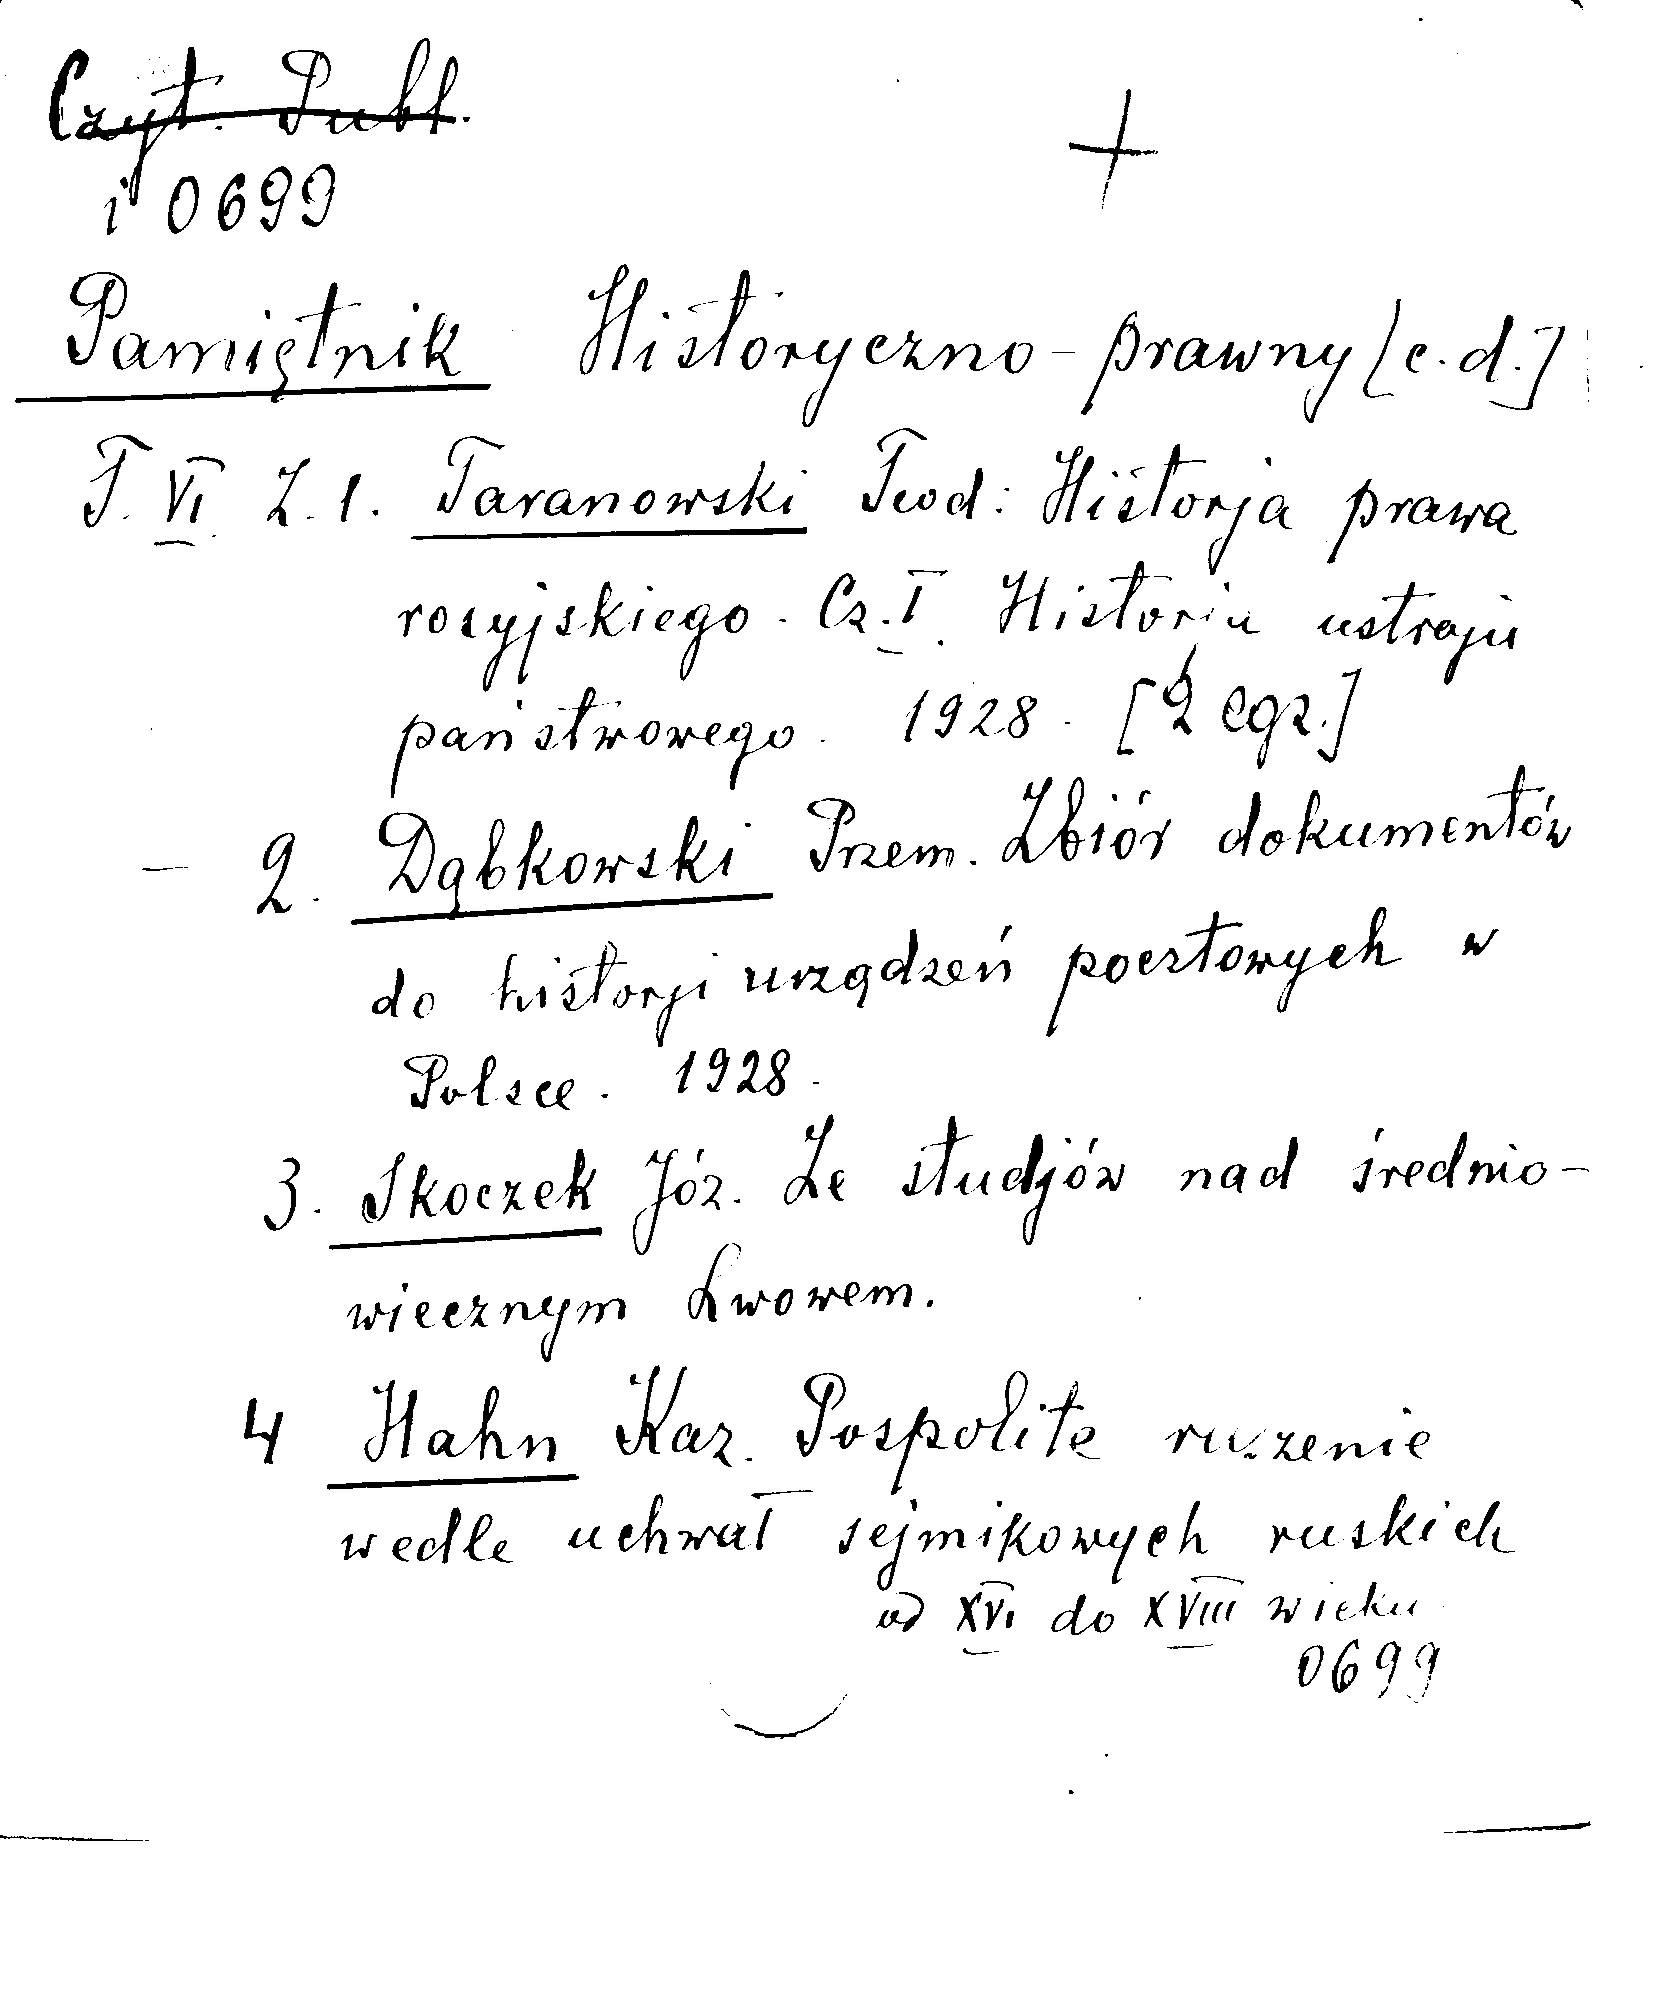 Czyt. Publ.
i 0699
+
Pamiętnik Historyczno-prawny [c.d.]
T. VI Z. 1. Taranowski Teod: Historja prawa
rosyjskiego. Cz. I. Historia ustroju
państwowego. 1928. [2 egz.]
– 2. Dąbkowski Przem. Zbiór dokumentów
do historji urządzeń pocztowych w
Polsce. 1928.
3. Skoczek Józ. Ze studjów nad średnio-
wiecznym Lwowem.
4 Hahn Kaz. Pospolite ruszenie
wedle uchwał sejmikowych ruskich
od XVI do XVIII wieku
0699